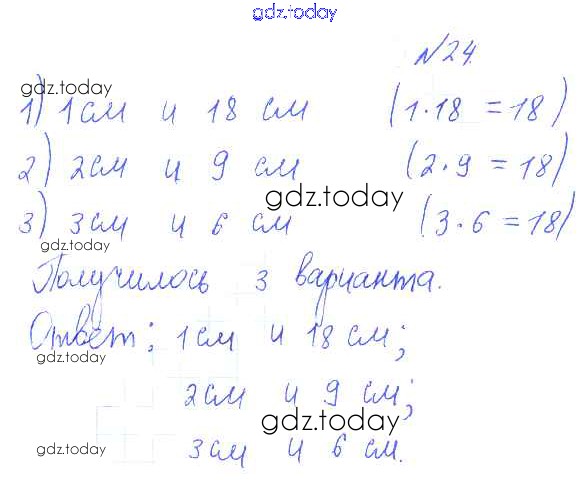 gdz.today
№24.
gdz.today
1) 1 см и 18 см (1·18 = 18)
2) 2 см и 9 см (2·9 = 18)
gdz.today
3) 3 см и 6 см (3·6 = 18)
gdz.today
Получилось 3 варианта.
Ответ: 1 см и 18 см;
gdz.today
2 см и 9 см;
gdz.today
3 см и 6 см.
gdz.today